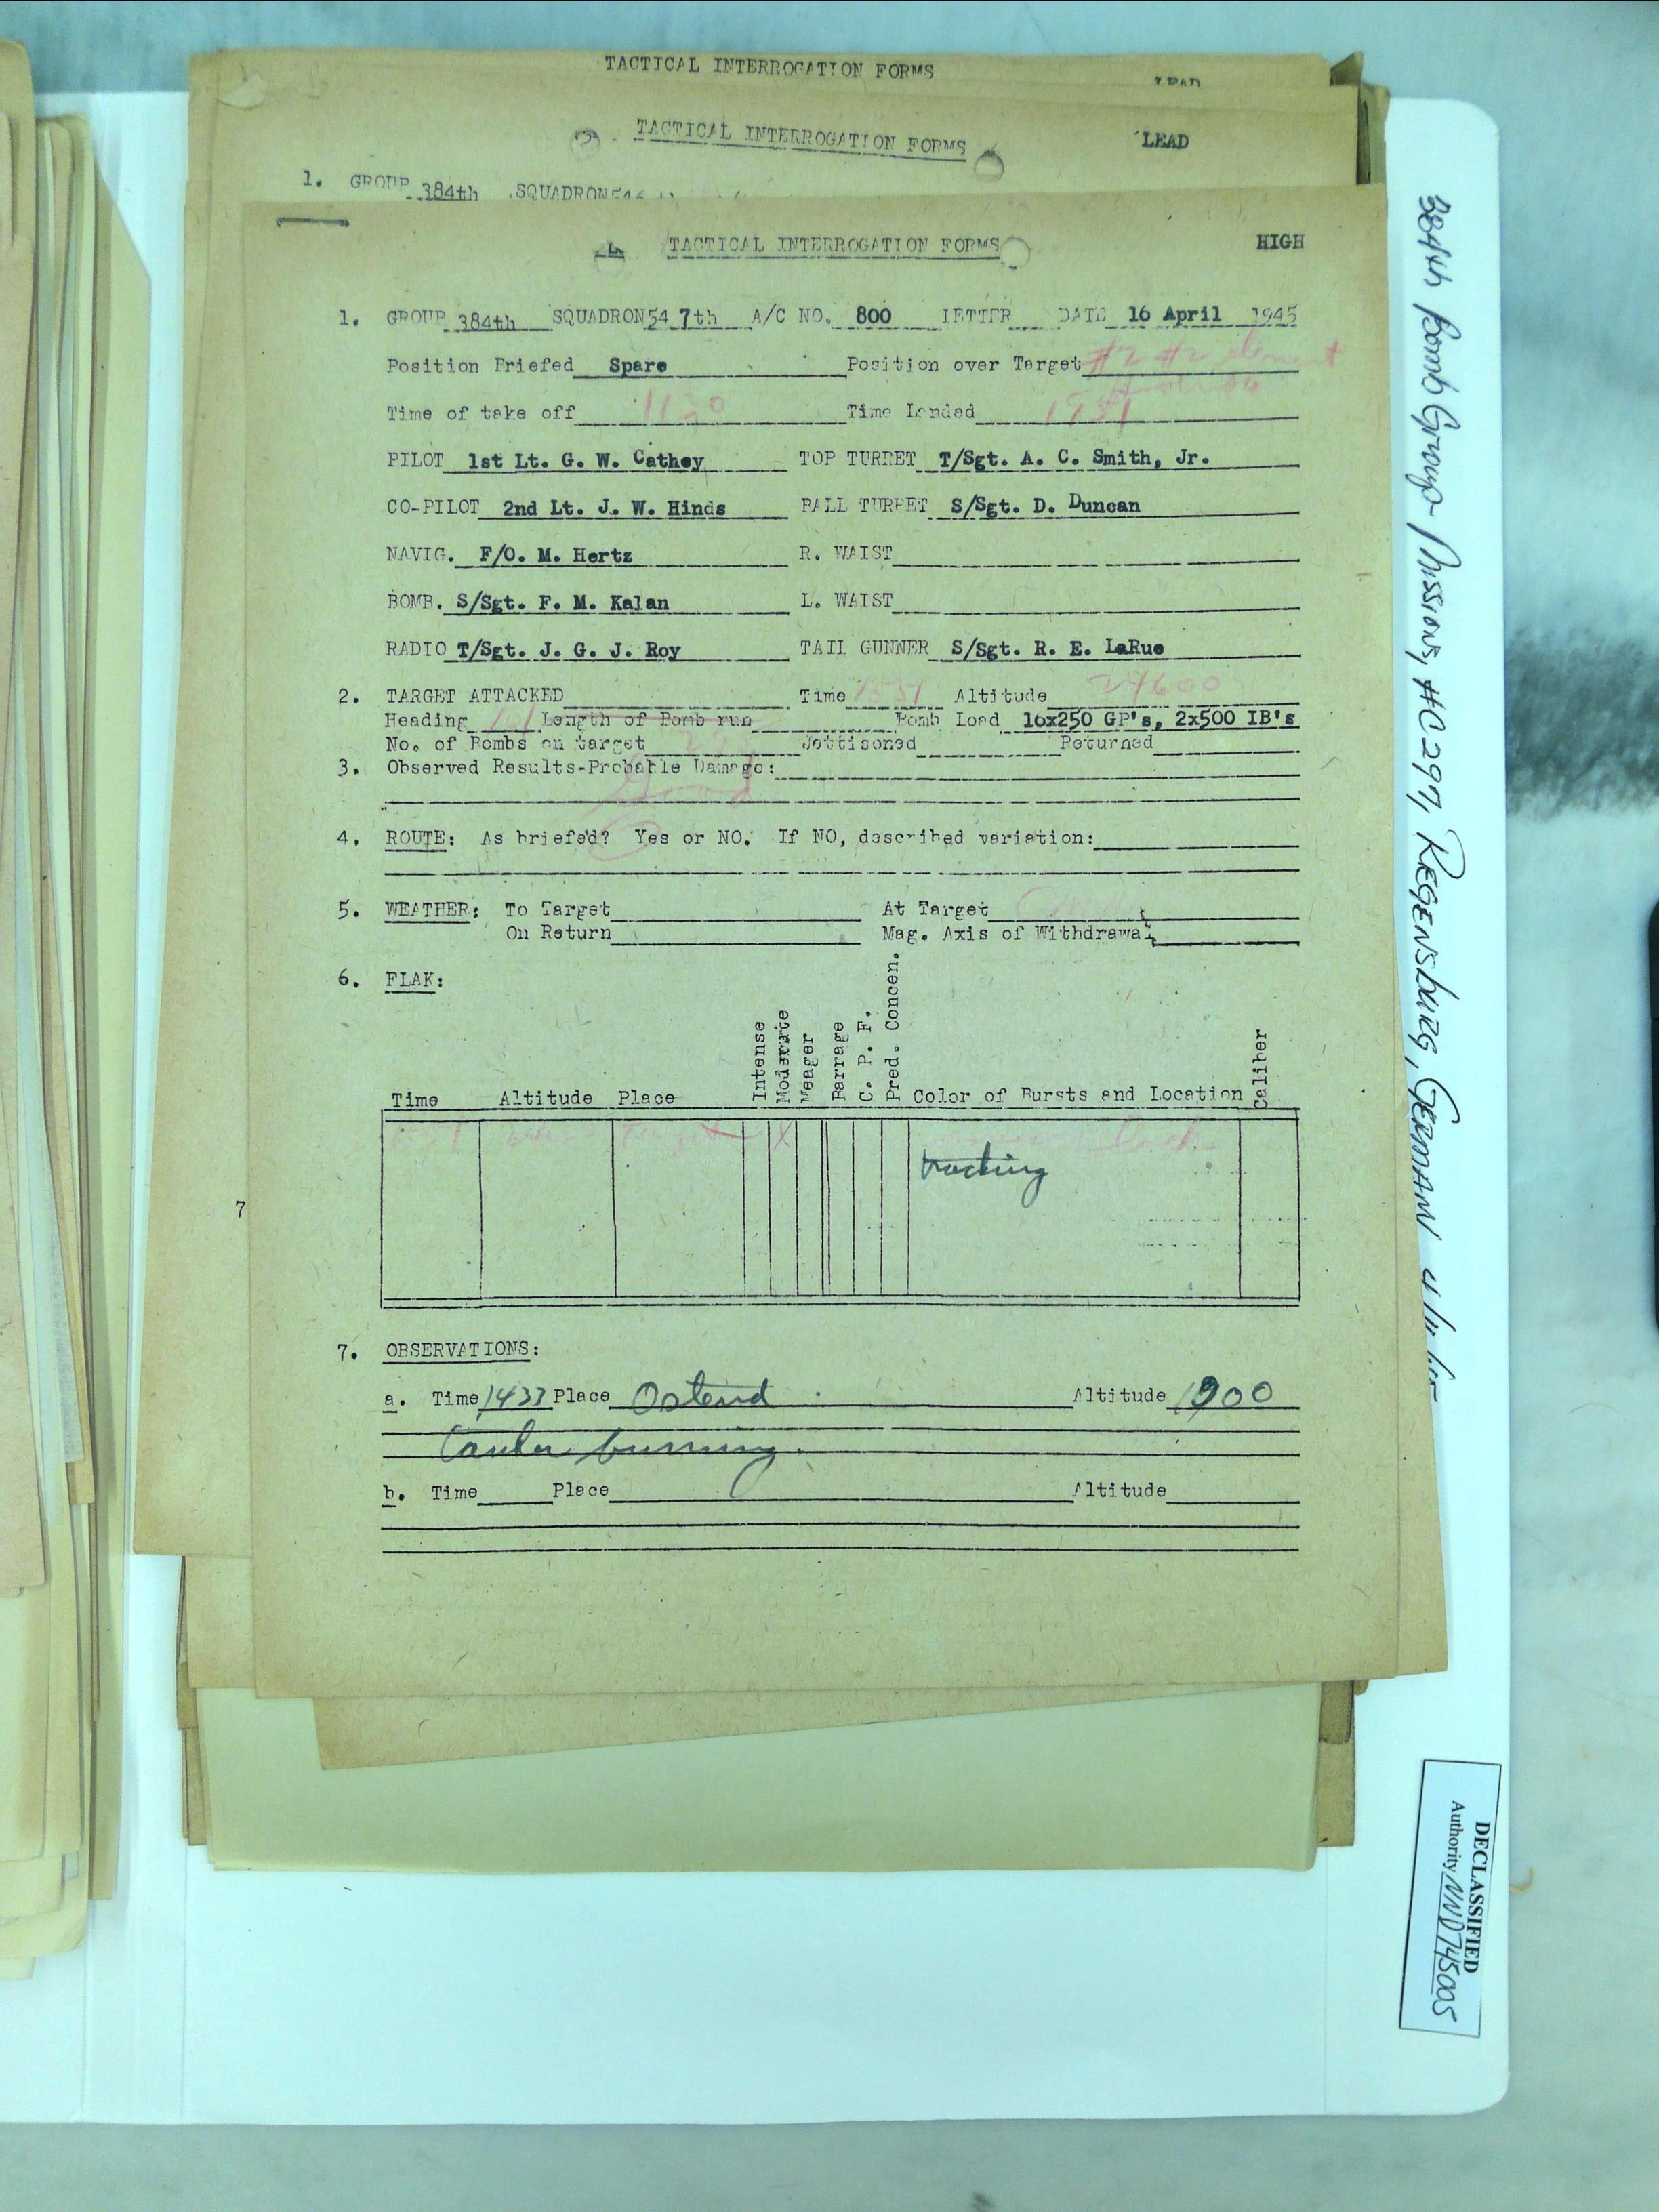 TACTICAL INTERROGATION FORMS
LEAD
TACTICAL INTERROGATION FORMS LEAD
1. GROUP 384th SQUADRON
TACTICAL INTERROGATION FORMS HIGH
1. GROUP 384th SQUADRON 547th A/C NO. 800 LETTER DATE 16 April 1945
Position Briefed Spare Position over Target #2 #2 element
Time of take off 1120 Time Landed 1931
PILOT 1st Lt. G. W. Cathey TOP TURRET T/Sgt. A. C. Smith, Jr.
CO-PILOT 2nd Lt. J. W. Hinds BALL TURRET S/Sgt. D. Duncan
NAVIG. F/O. M. Hertz R. WAIST
BOMB. S/Sgt. F. M. Kalan L. WAIST
RADIO T/Sgt. J. G. J. Roy TAIL GUNNER S/Sgt. R. E. LaRue
2. TARGET ATTACKED Time 1551 Altitude 24600
Heading Length of Bomb run Bomb Load 16x250 GP's, 2x500 IB's
No. of Bombs on target Jettisoned Returned
3. Observed Results-Probable Damage:
Good
4. ROUTE: As briefed? Yes or NO. If NO, described variation:
5. WEATHER: To Target At Target
On Return Mag. Axis of Withdrawal
6. FLAK:
Time Altitude Place Intense Moderate Meager Barrage C. P. F. Pred. Concen. Color of Bursts and Location Caliber
Target X black
tracking
7
7. OBSERVATIONS:
a. Time 1433 Place Ostend Altitude 1900
burning
b. Time Place Altitude
384th Bomb Group Mission, #C 297, REGENSBURG, GERMANY
DECLASSIFIED
Authority NND745005